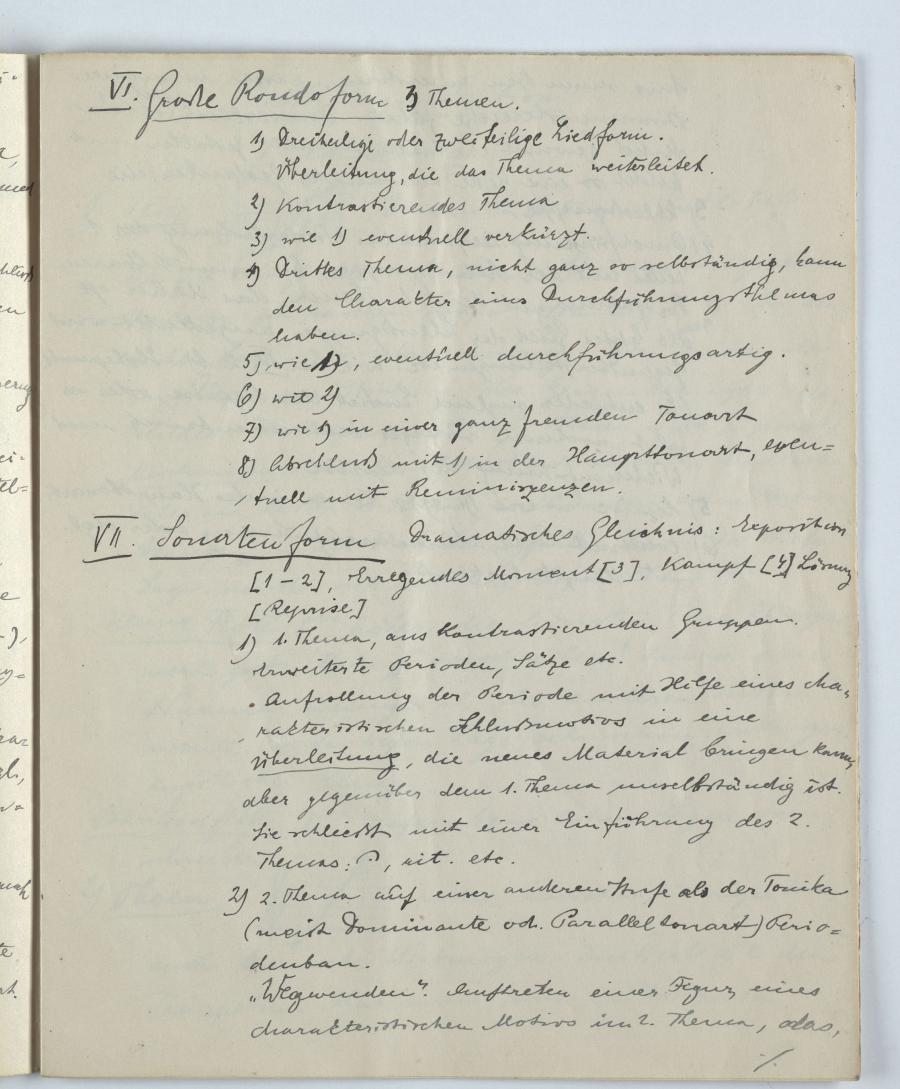 VI. Große Rondoform 3 Themen.
1) Dreiteilige oder zweiteilige Liedform.
Überleitung, die das Thema weiterleitet.
2) Kontrastierendes Thema
3) wie 1) eventuell verkürzt.
4) Drittes Thema, nicht ganz so selbständig, kann
den Charakter eines Durchführungsthemas
haben.
5) wie 1), eventuell durchführungsartig.
6) wie 2)
7) wie in einer ganz fremden Tonart
8) Abschluß mit 1) in der Haupttonart, even=
tuell mit Reminiszenzen.
VII. Sonatenform Dramatisches Gleichnis: Exposition
[1-2], Erregendes Moment [3], Kampf [4] Lösung
[Reprise]
1) 1. Thema, aus kontrastierenden Gruppen.
Erweiterte Perioden, Sätze etc.
Aufrollung der Periode mit Hilfe eines cha=
rakteristischen Schlußmotivs in eine
Überleitung, die neues Material bringen kann,
aber gegenüber dem 1. Thema unselbständig ist.
Sie schließt mit einer Einführung des 2.
Themas: 𝄐, rit. etc.
2) 2. Thema auf einer anderen Stufe als der Tonika
(meist Dominante od. Paralleltonart) Perio=
denbau.
„Wegwenden". Auftreten einer Figur, eines
charakteristischen Motivs im 2. Thema, das,
./.